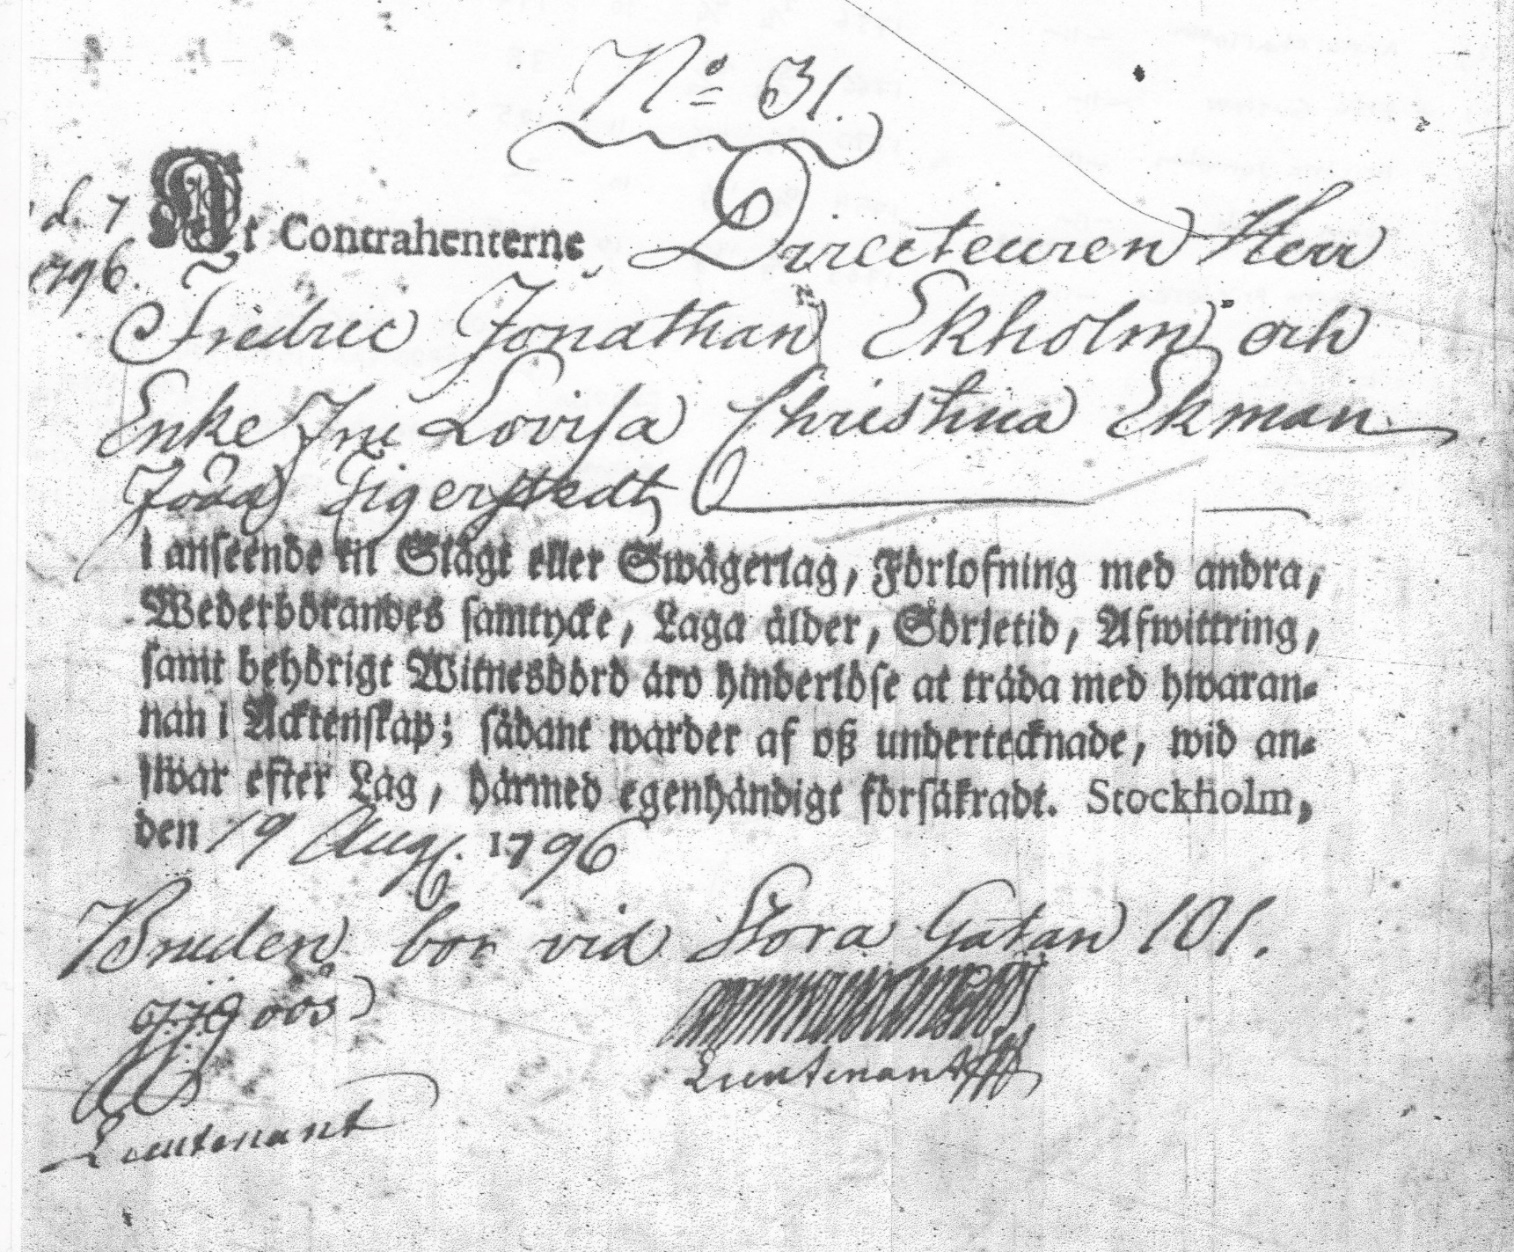 No 31.
d. 7
1796.
At Contrahenterne Directeuren Herr
Fredric Jonathan Ekholm och
Enke Fru Lovisa Christina Ekman
Född Tigerstedt
i anseende til Slägt eller Swägerlag, Förlofning med andra,
Wederbörandes samtycke, Laga ålder, Sörjetid, Afwittring,
samt behörigt Witnesbörd äro hinderlöse at träda med hwaran-
nan i Äcktenskap; sådant warder af oß undertecknade, wid an-
swar efter Lag, härmed egenhändigt försäkradt. Stockholm,
den 19 Aug. 1796
Bruden bor vid Stora Gatan 101.
Lieutenant
Lieutenant